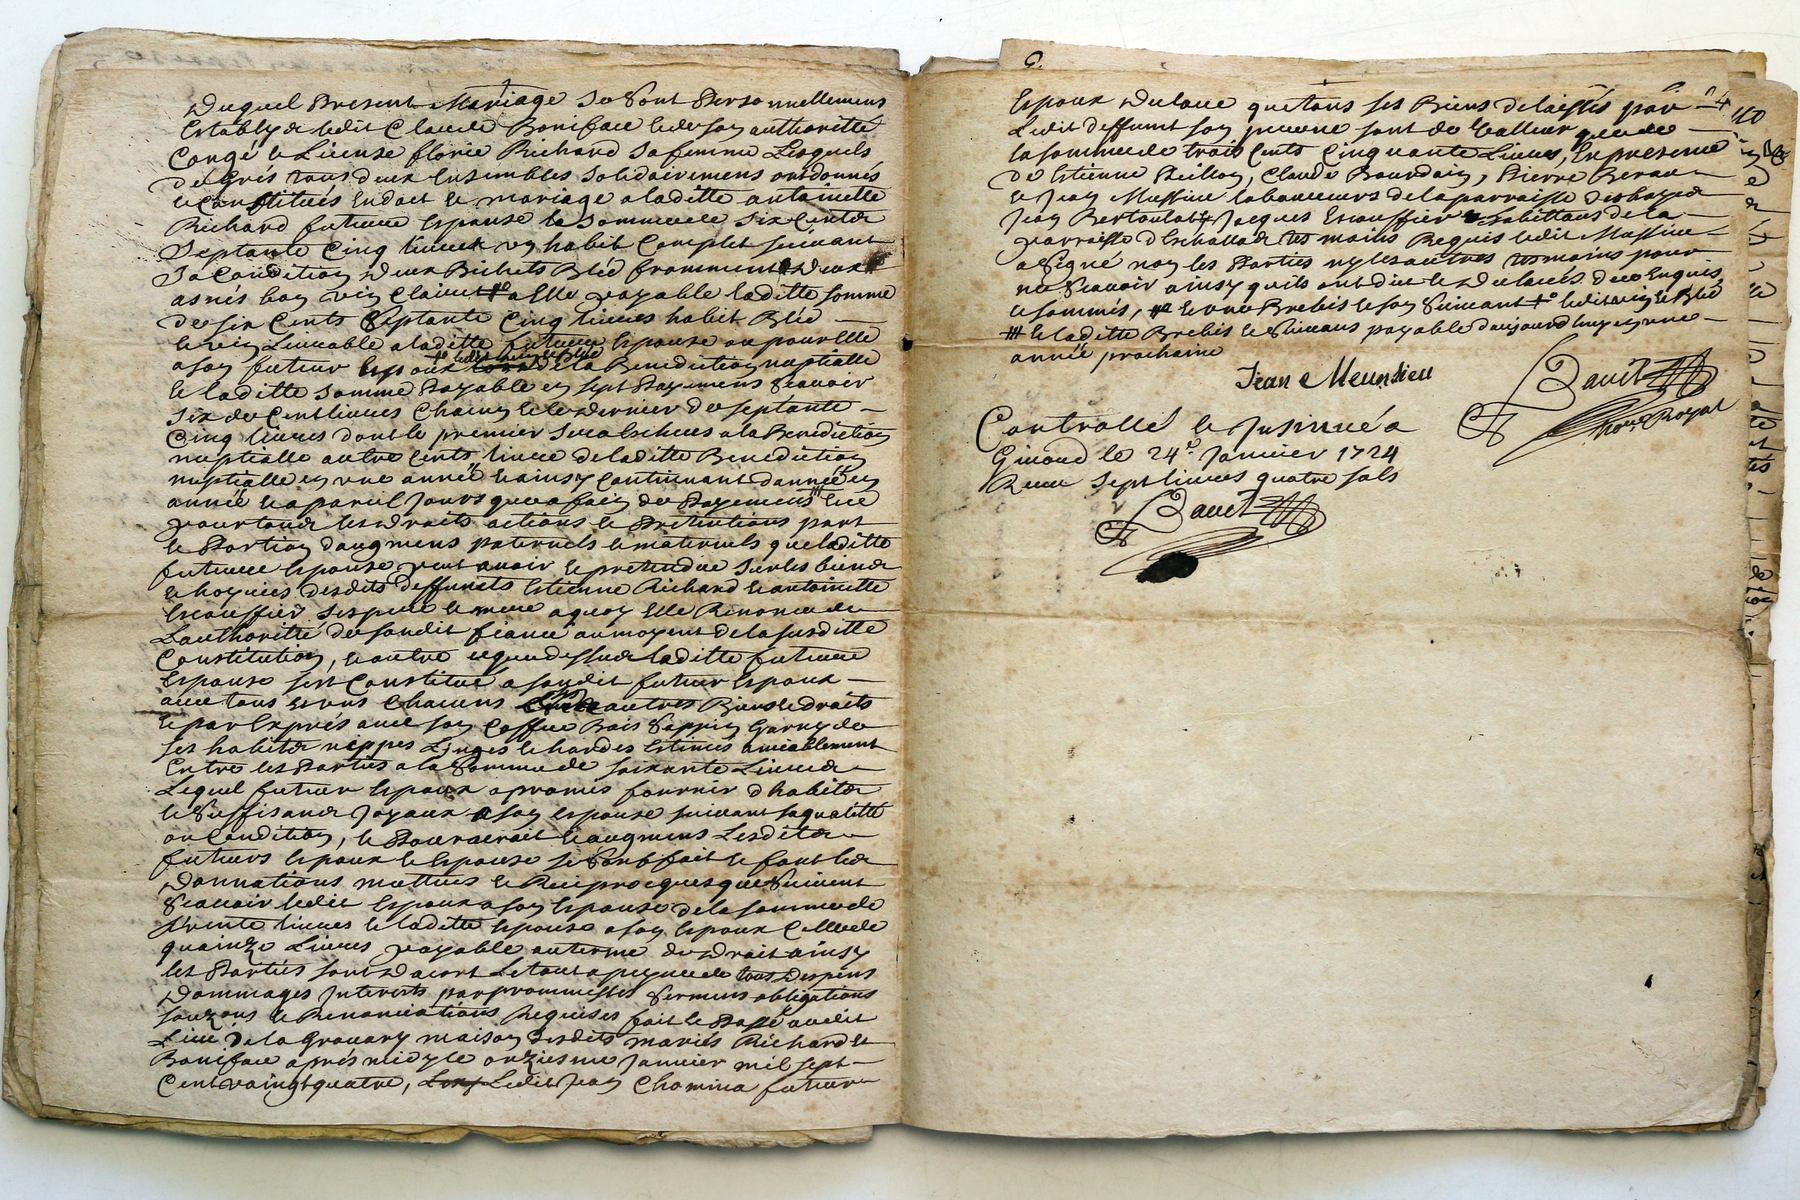 Duquel Present Mariage se sont Personnellement
Establys ledit Claude Boniface et de son authorité
Congé et License florie Richard sa femme Lesquels
de Gris tous deux Ensembles solidairement ont donnés
et Constitués En dot et mariage a laditte antoinette
Richard future Espouse la somme de six Cents
Septante Cinq livres un habit Complet suivant
sa Condition deux Bichets Bléd fromment deux
asnés bon vin Clairet a Elle payable laditte somme
de six Cents Septante Cinq livres habit Bléd
et vin Livrable a laditte future Espouse ou pour Elle
a son futur Espoux de la Benediction nuptialle
et laditte somme Payable en sept Payemens scavoir
six de Cent livres Chacun et le dernier de septante
Cinq livres dont le premier sera Escheus a la Benediction
nuptialle autre Cents livres de laditte Benediction
nuptialle en une année et ainsy Continuant d'année en
année et a pareil Jours jusques a fain de Payement Et ce
pour tous les droits actions et Prétentions part
et Portion d'augment paternels et maternels que laditte
future Espouse peut avoir et pretendre sur les biens
et hoyries desdits deffunts Estienne Richard et antoinette
Escouffier ses pere et mere a quoy Elle Renonce de
L'authorité de sondit fiancé au moyent de la susditte
Constitution, et outre ce que dessus laditte future
Espouse s'est Constitué a sondit futur Espoux
avec tous et uns Chacuns autres Biens et droits
et par Exprés avec son Coffre Bois Sappin Garny de
ses habits nippes Linges et hardes Estimés amiablement
Entre les Parties a la Somme de soixante Livres
Lequel futur Espoux a promis fournir d'habits
et Suffisans Joyaux a son Espouse suivant sa qualitté
ou Condition, et Pour Lesdits
futurs Espoux et Espouse se sont fait et font les
Donnations mutuis et Reciprocques que Suivent
Scavoir ledit Espoux a son Espouse de la somme de
trente livres et laditte Espouse a son Espoux Celle de
quainze Livres payable au terme de droit ainsy
les Parties sont D'acort Le tout a peyne de tous despens
Dommages Interests par prommesses Serment obligations
et Renonciations Requises fait et Passé audit
Lieu de la maison desdits mariés Richard et
Boniface aprés midy le onziesme Janvier mil sept
Cent vaingt quatre, Ledit Jean Chomina futur
Espoux Declare que tous ses Biens delaissés par
Ledit deffunt son sont de Valleur que de
la somme de trois Cents Cinquante Livres, En presence
de Estienne Claude Bourdain, Pierre
et Jean laboureurs de la parroisse
Jean Jacques Escouffier habittans de la
parroisse d'Eschallas tesmoins Requis ledit
a signé non les Parties ny les autres tesmoins pour
ne Scavoir ainsy qu'ils ont dit et declarés de ce Enquis
et sommés, et une Brebis et son Suivant ledit vin et Bléd
et laditte Brebis et Suivans payable d'aujourd'huy en une
année prochaine
Jean Meunsieu
Bauet
no.re Royal
Controllé et Insinué a
Givord le 24.e Janvier 1724
Receu Sept livres quatre sols
Bauet